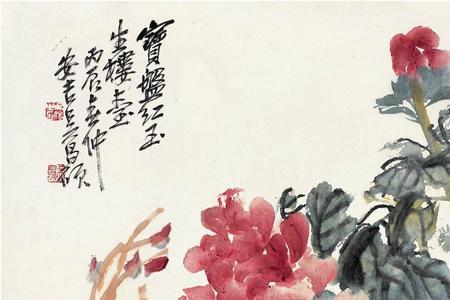 寶盤紅玉
生樓臺
丙辰春仲
安吉吳昌碩